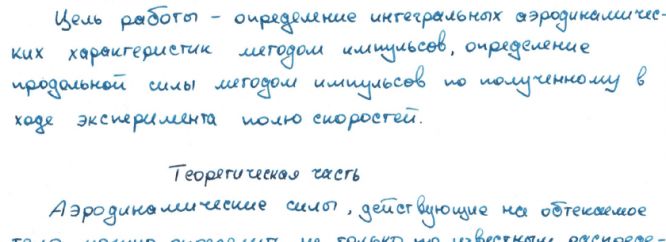 Цель работы - определение интегральных аэродинамичес-
ких характеристик методом импульсов, определение
продольной силы методом импульсов по полученному в
ходе эксперимента полю скоростей.
Теоретическая часть
Аэродинамические силы, действующие на обтекаемое
тело можно определить не только по известным распреде-